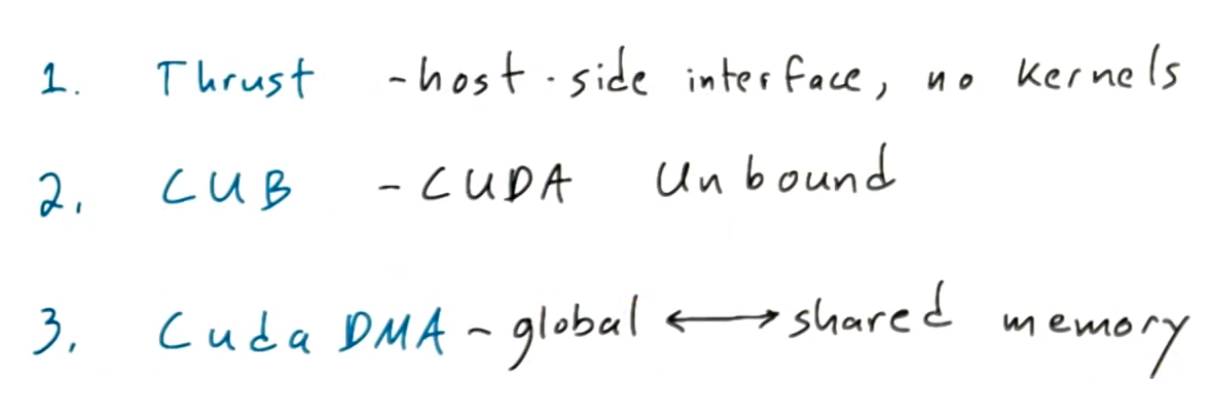 1. Thrust - host-side interface, no kernels
2. CUB - CUDA Unbound
3. Cuda DMA - global ⟷ shared memory